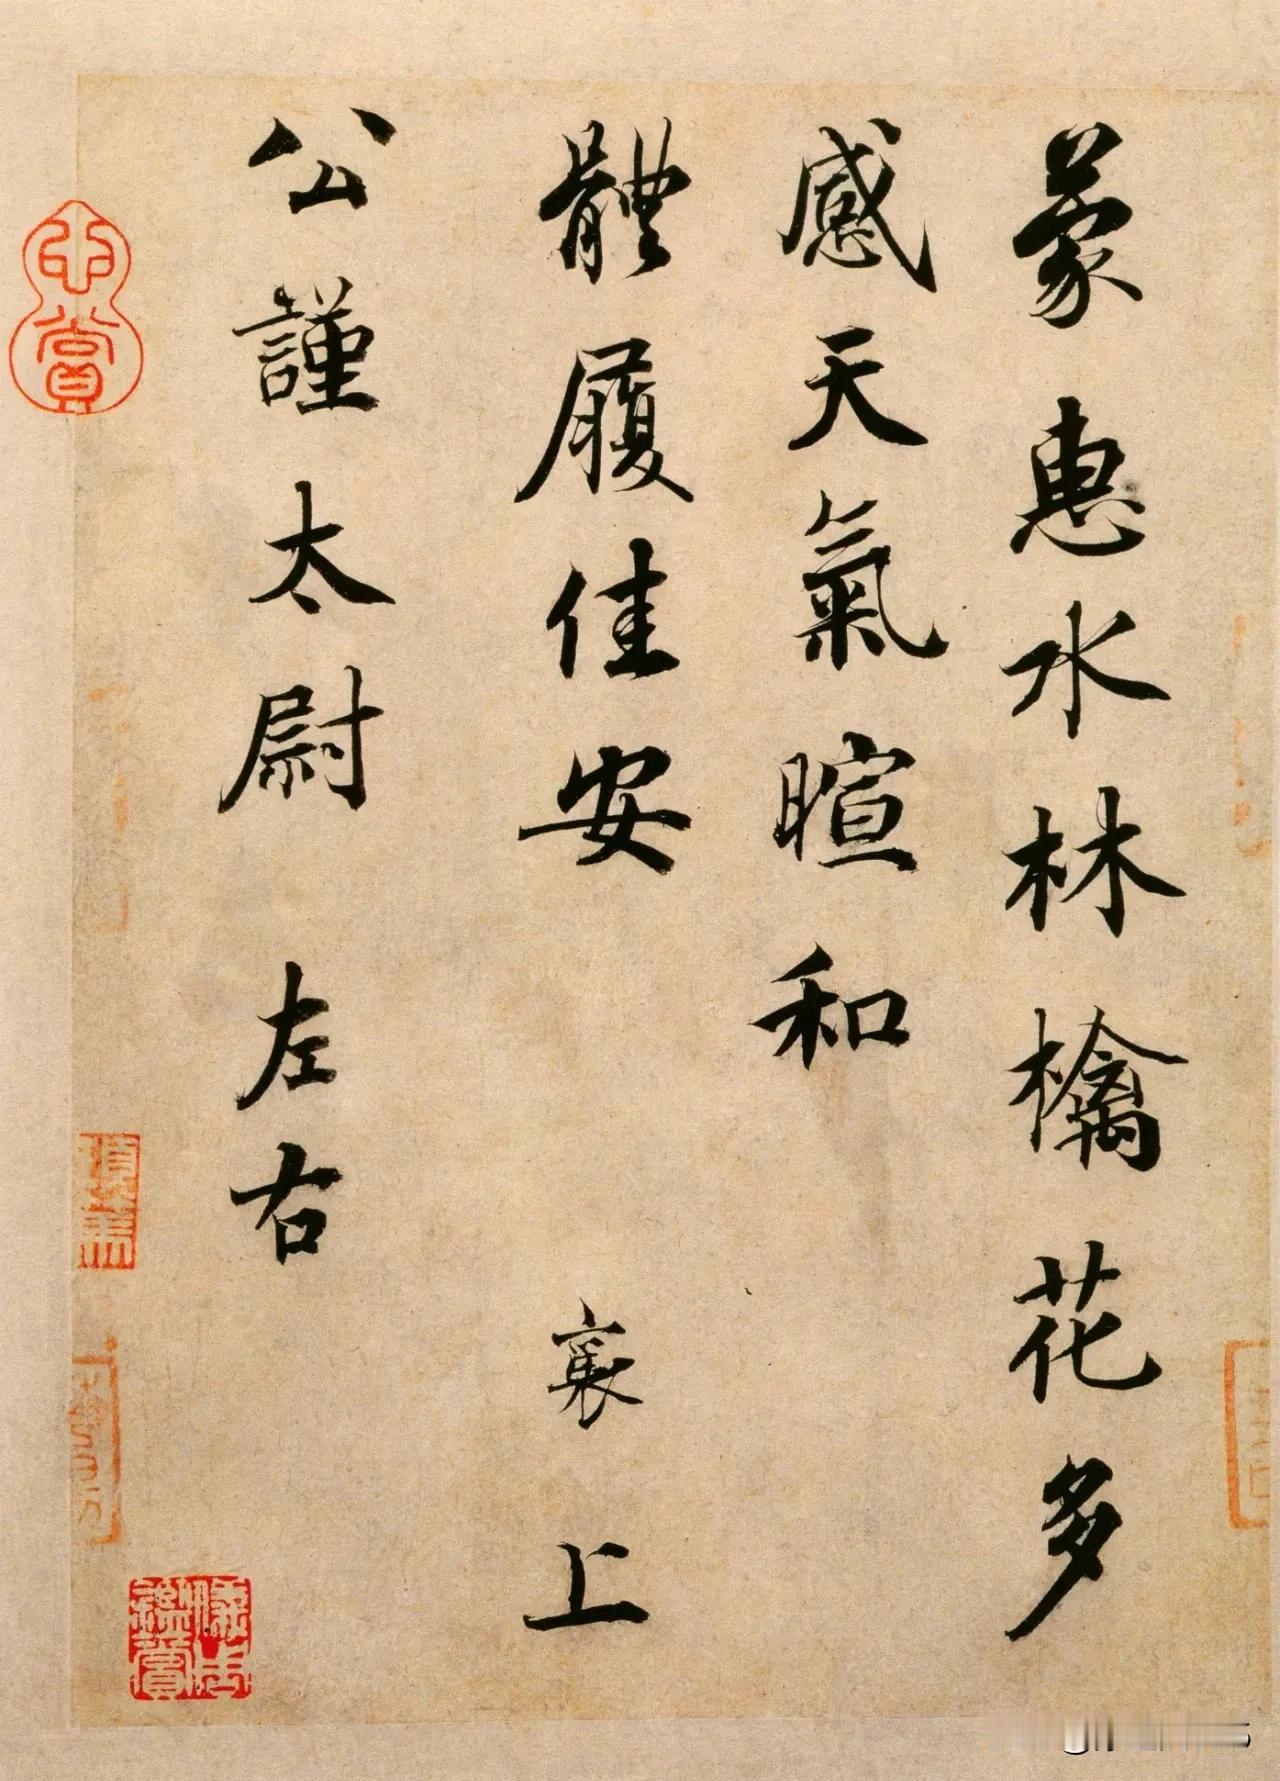 蒙惠水林檎花多
感天氣暄和
體履佳安
襄上
公謹太尉 左右
心賞